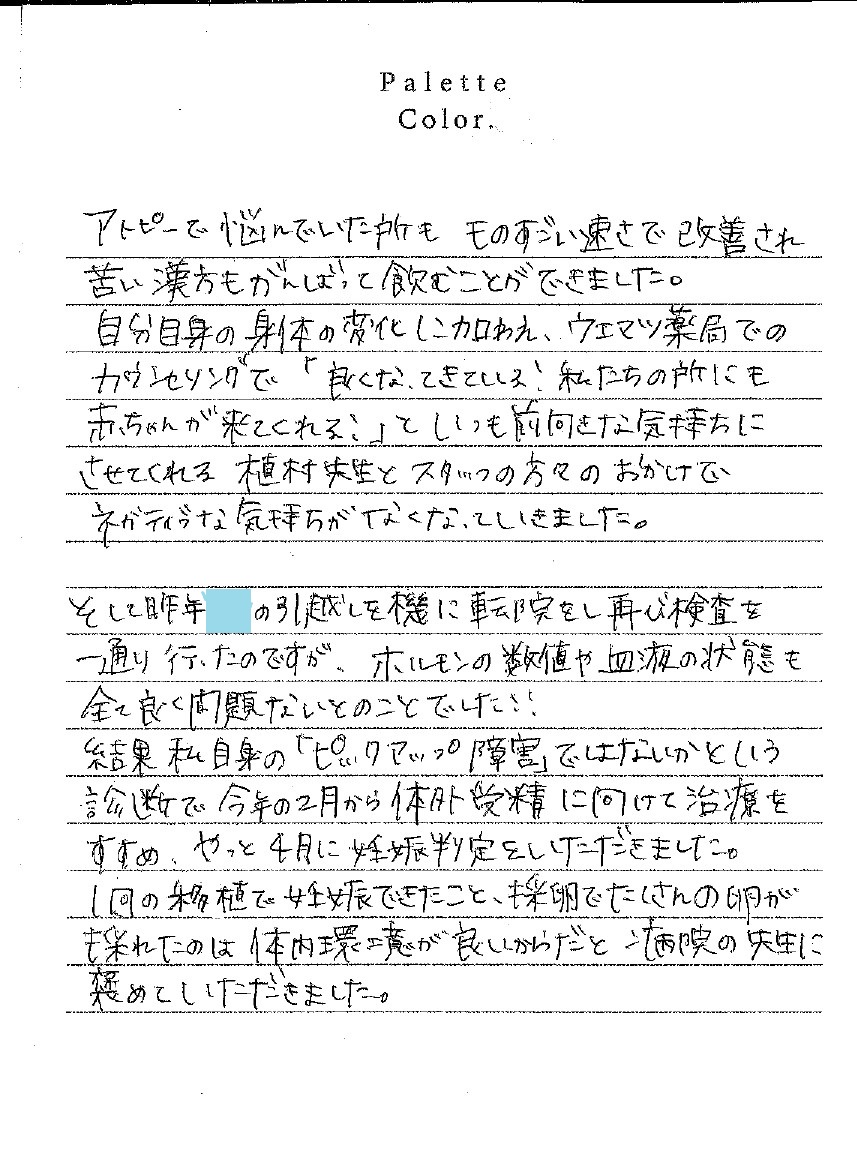 Palette
Color.
アトピーで悩んでいた所も ものすごい速さで改善され
苦い漢方もがんばって飲むことができました。
自分自身の身体の変化に加わえ、ウエマツ薬局での
カウンセリングで「良くなってきている！私たちの所にも
赤ちゃんが来てくれる！」といつも前向きな気持ちに
させてくれる 植村先生とスタッフの方々のおかげで
ネガティブな気持ちがなくなっていきました。
そして昨年 の引越しを機に転院をし再び検査を
一通り行ったのですが、ホルモンの数値や血液の状態も
全て良く問題ないとのことでした！！
結果 私自身の「ピックアップ障害」ではないかという
診断で今年の2月から体外受精に向けて治療を
すすめ、やっと4月に妊娠判定をいただきました。
1回の移植で妊娠できたこと、採卵でたくさんの卵が
採れたのは体内環境が良いからだと 病院の先生に
褒めていただきました。